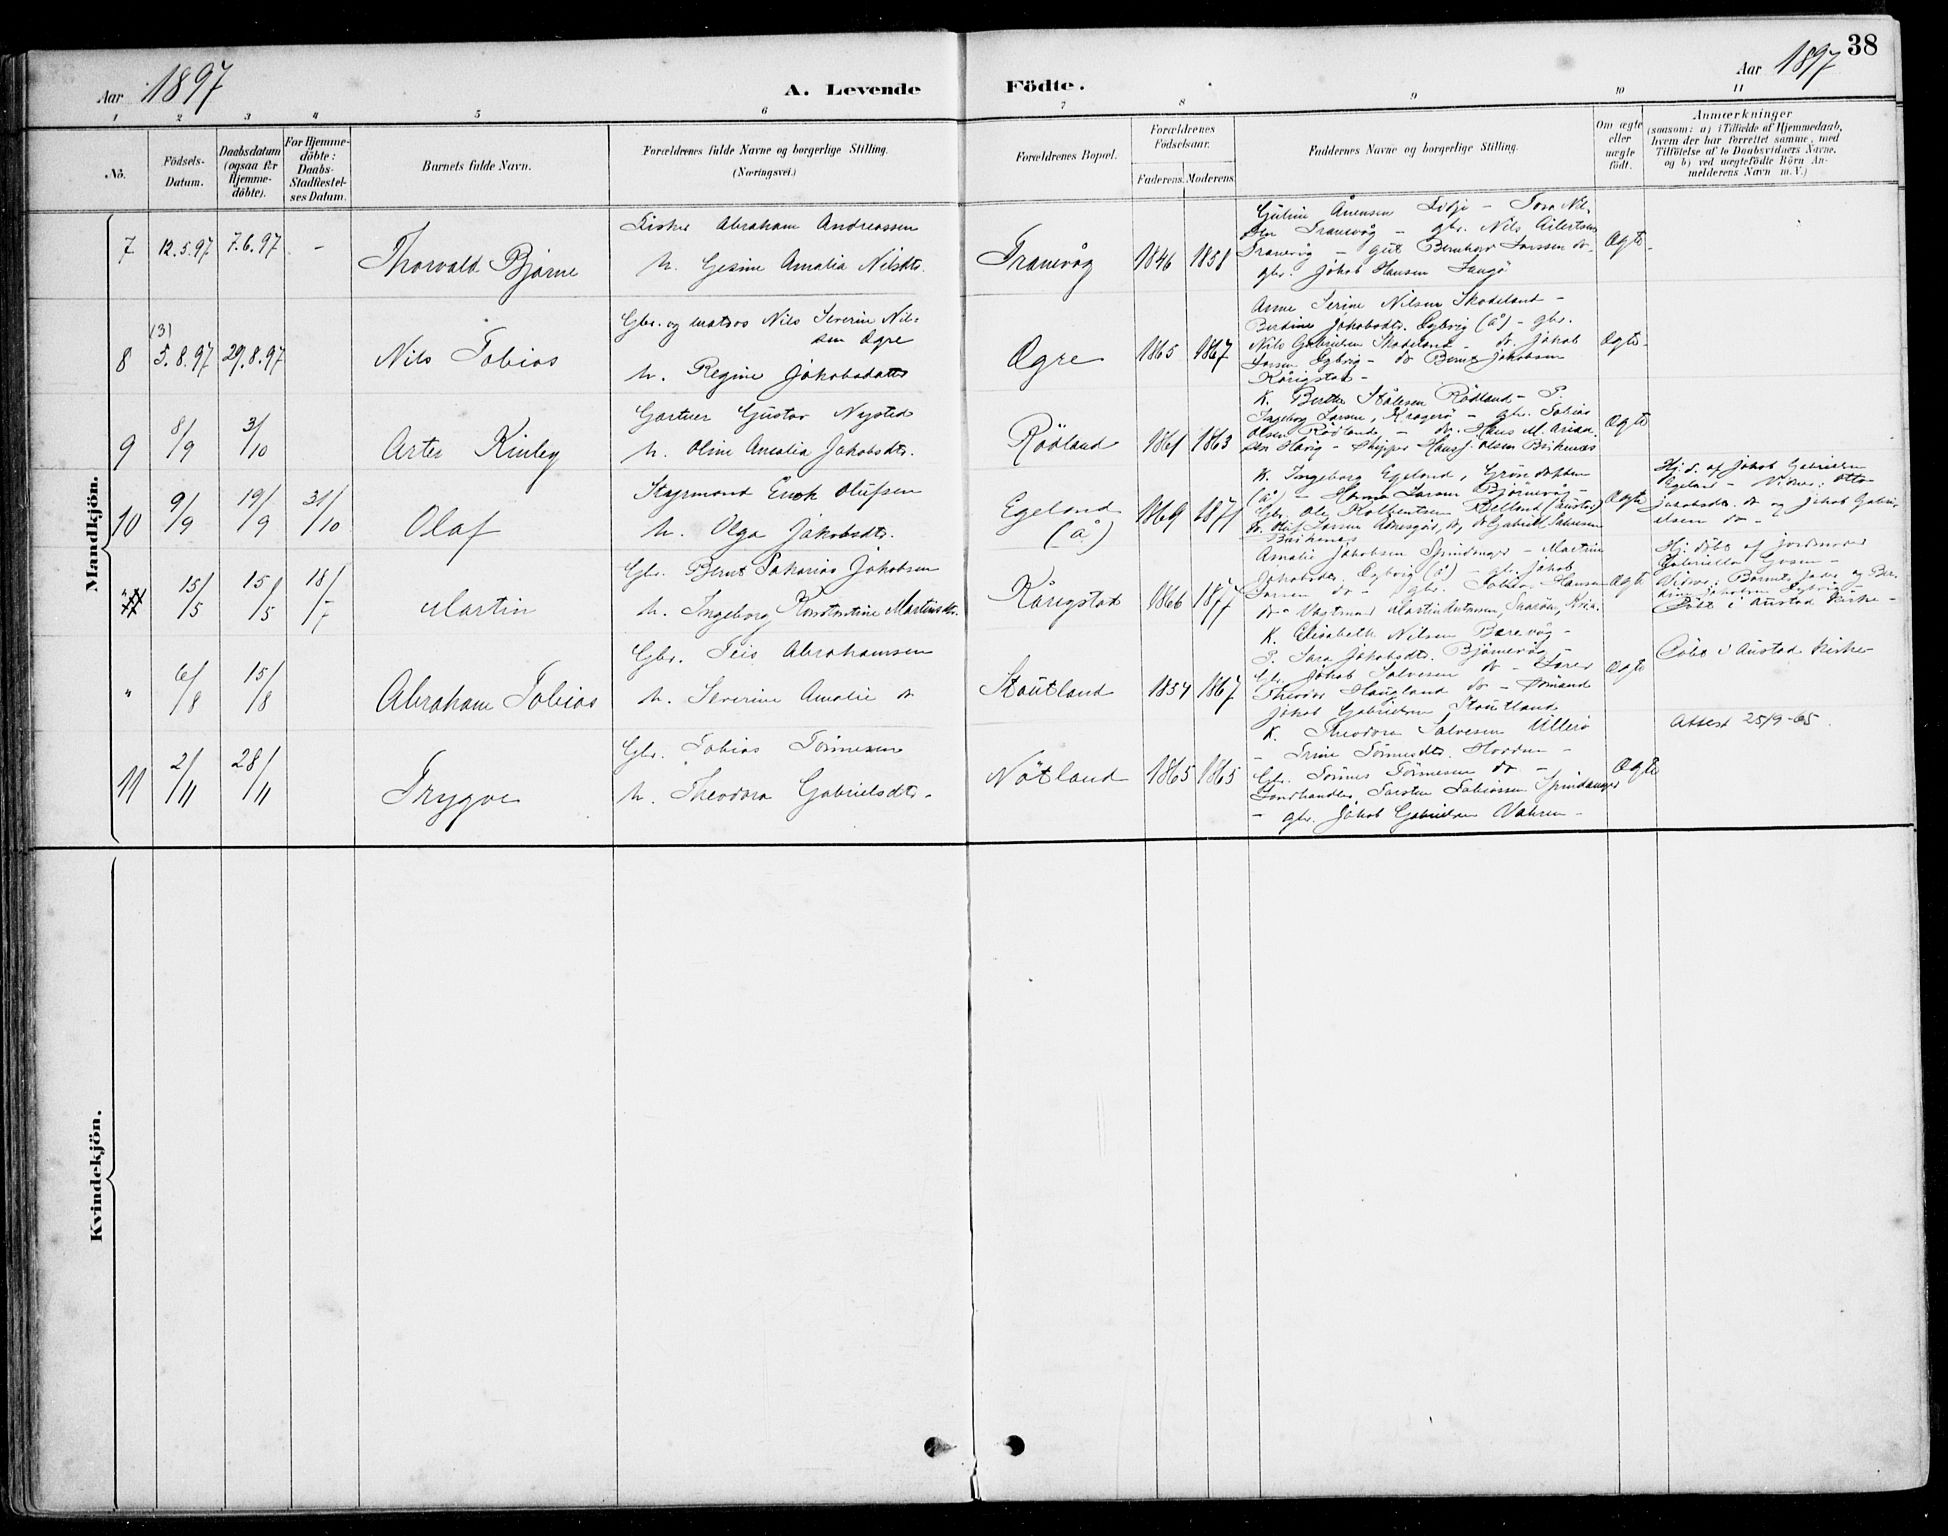 38
Aar 1897
A. Levende Födte.
Aar 1897
1 2 3 4 5 6 7 8 9 10 11
No.
Födsels-Datum.
Daabsdatum (ogsaa for Hjemme-döbte).
For Hjemme-döbte: Daabs-Stadfæstel-ses Datum.
Barnets fulde Navn.
Forældrenes fulde Navne og borgerlige Stilling. (Næringsvei.)
Forældrenes Bopæl.
Forældrenes Födselsaar.
Faderens. Moderens.
Faddernes Navne og borgerlige Stilling.
Om ægte eller uægte födt.
Anmærkninger
(saasom: a) i Tilfælde af Hjemmedaab,
hvem der har forrettet samme, med
Tilföielse af to Daabsvidners Navne,
og b) ved uægtefödte Börn An-
melderens Navn m. V.)
Mandkjön.
7 12.5.97 7.6.97 -
Thorvald Bjarne
Fisker Abraham Andreassen
h. Gesine Amalia Nilsdtr.
Tranevåg 1846 1858
Tranevåg - gbr. Nils Eilertsen
gbr. Jakob Hansen Langö
Ægte
8 (3) 5.8.97 29.8.97
Nils Tobias
Gbr. og matros Nils Severin Nil-
sen Ögre
h. Regine Jakobsdatter
Ögre 1865 1867
Anne Serine Nilsen Skodeland -
Berdine Jakobsdtr. Eybvig (å) - gbr.
Nils Gabrielsen Skodeland - do. Jakob
Larsen Eybvig - do Bernt Jakobsen
Kårigstad -
Ægte
9 8/9 3/10
Arter Kinley
Gartner Gustav Nysted
h. Oline Amalia Jakobsdtr.
Rödland 1861 1863
K. Berthe Stålesen Rödland - P.
Ingeborg Larsen, Kragerö - gbr. Tobias
Olsen Rödland - do. Hans M. Arian-
sen Hövig - Skipper Hans J. Olsen Birkenes
Ægte
10 9/9 19/9 31/10
Olaf
Styrmand Erik Olufsen
h. Olga Jakobsdtr.
Egeland (å) 1869 1877
K. Ingeborg Egeland,
(å) - Hanna Larsen Björnevåg -
Gbr. Ole Kolbentsen Belland (Austad)
Birkenes
Ægte
Hj. d. af Jakob Gabrielsen
Egeland - Vidner: Otto
Jakobsdtr. do og Jakob Gabri-
elsen do -
" 15/5 15/5 18/7
Martin
Gbr. Bernt Sakarias Jakobsen
h. Ingeborg Konstantine Martinsdtr.
Kårigstad 1866 1877
Amalie Jakobsen Spindanger - Martine
Jakobsdtr. Eybvig (å) - gbr. Jakob
Larsen do - gbr. Tobias Hansen
Ægte
Hj. döbt af jordmoder
Gabriella Gosen -
Vidner: Barnets fader og Ber-
dine Jakobsen Eybvig -
Döbt i Austad kirke -
" 6/8 15/8
Abraham Tobias
Gbr. Teis Abrahamsen
h. Severine Amalie do
Stoutland 1854 1867
K. Elisabeth Nilsen Barevåg -
P. Sara Jakobsdtr. Björnevåg -
Gbr. Jakob Salvesen do - Lærer
Theodor Haugland do - Sömand
Jakob Gabrielsen Stoutland
Ægte
Döbt i Austad kirke -
11 2/11 28/11
Trygve
Gbr. Tobias Tönnesen
h. Theodora Gabrielsdtr.
Nötland 1865 1865
K. Theodora Salvesen Ullerö
- Trine Tönnesdtr. Hovden -
Gbr. Tönnes Tönnesen do -
Landhandler Torsten Tobiassen Spindanger
- gbr. Jakob Gabrielsen Vatnen -
Ægte
Attest 25/9-65.
Kvindekjön.